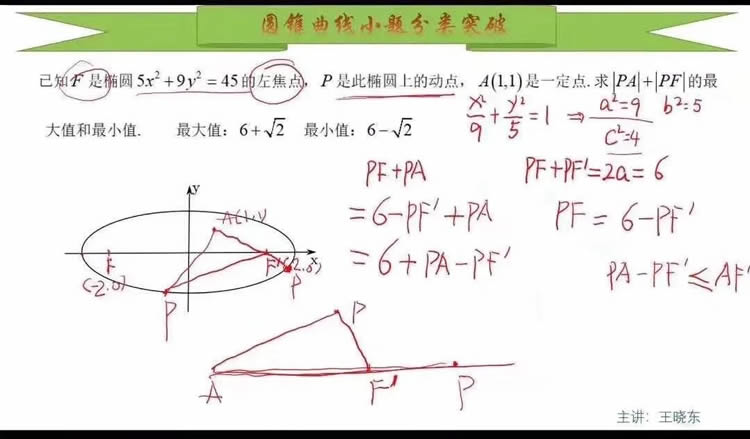 圆锥曲线小题分类突破
已知F是椭圆5x²+9y²=45的左焦点，P是此椭圆上的动点，A(1,1)是一定点.求|PA|+|PF|的最
大值和最小值. 最大值：6+√2 最小值：6−√2
x²/9+y²/5=1 ⇒ a²=9 b²=5
c²=4
PF+PA PF+PF'=2a=6
=6-PF'+PA PF=6-PF'
=6+PA-PF'
PA-PF'≤AF'
y
A(1,1)
F F'(2.0) x
(-2.0) P
P
P
A F' P
主讲：王晓东